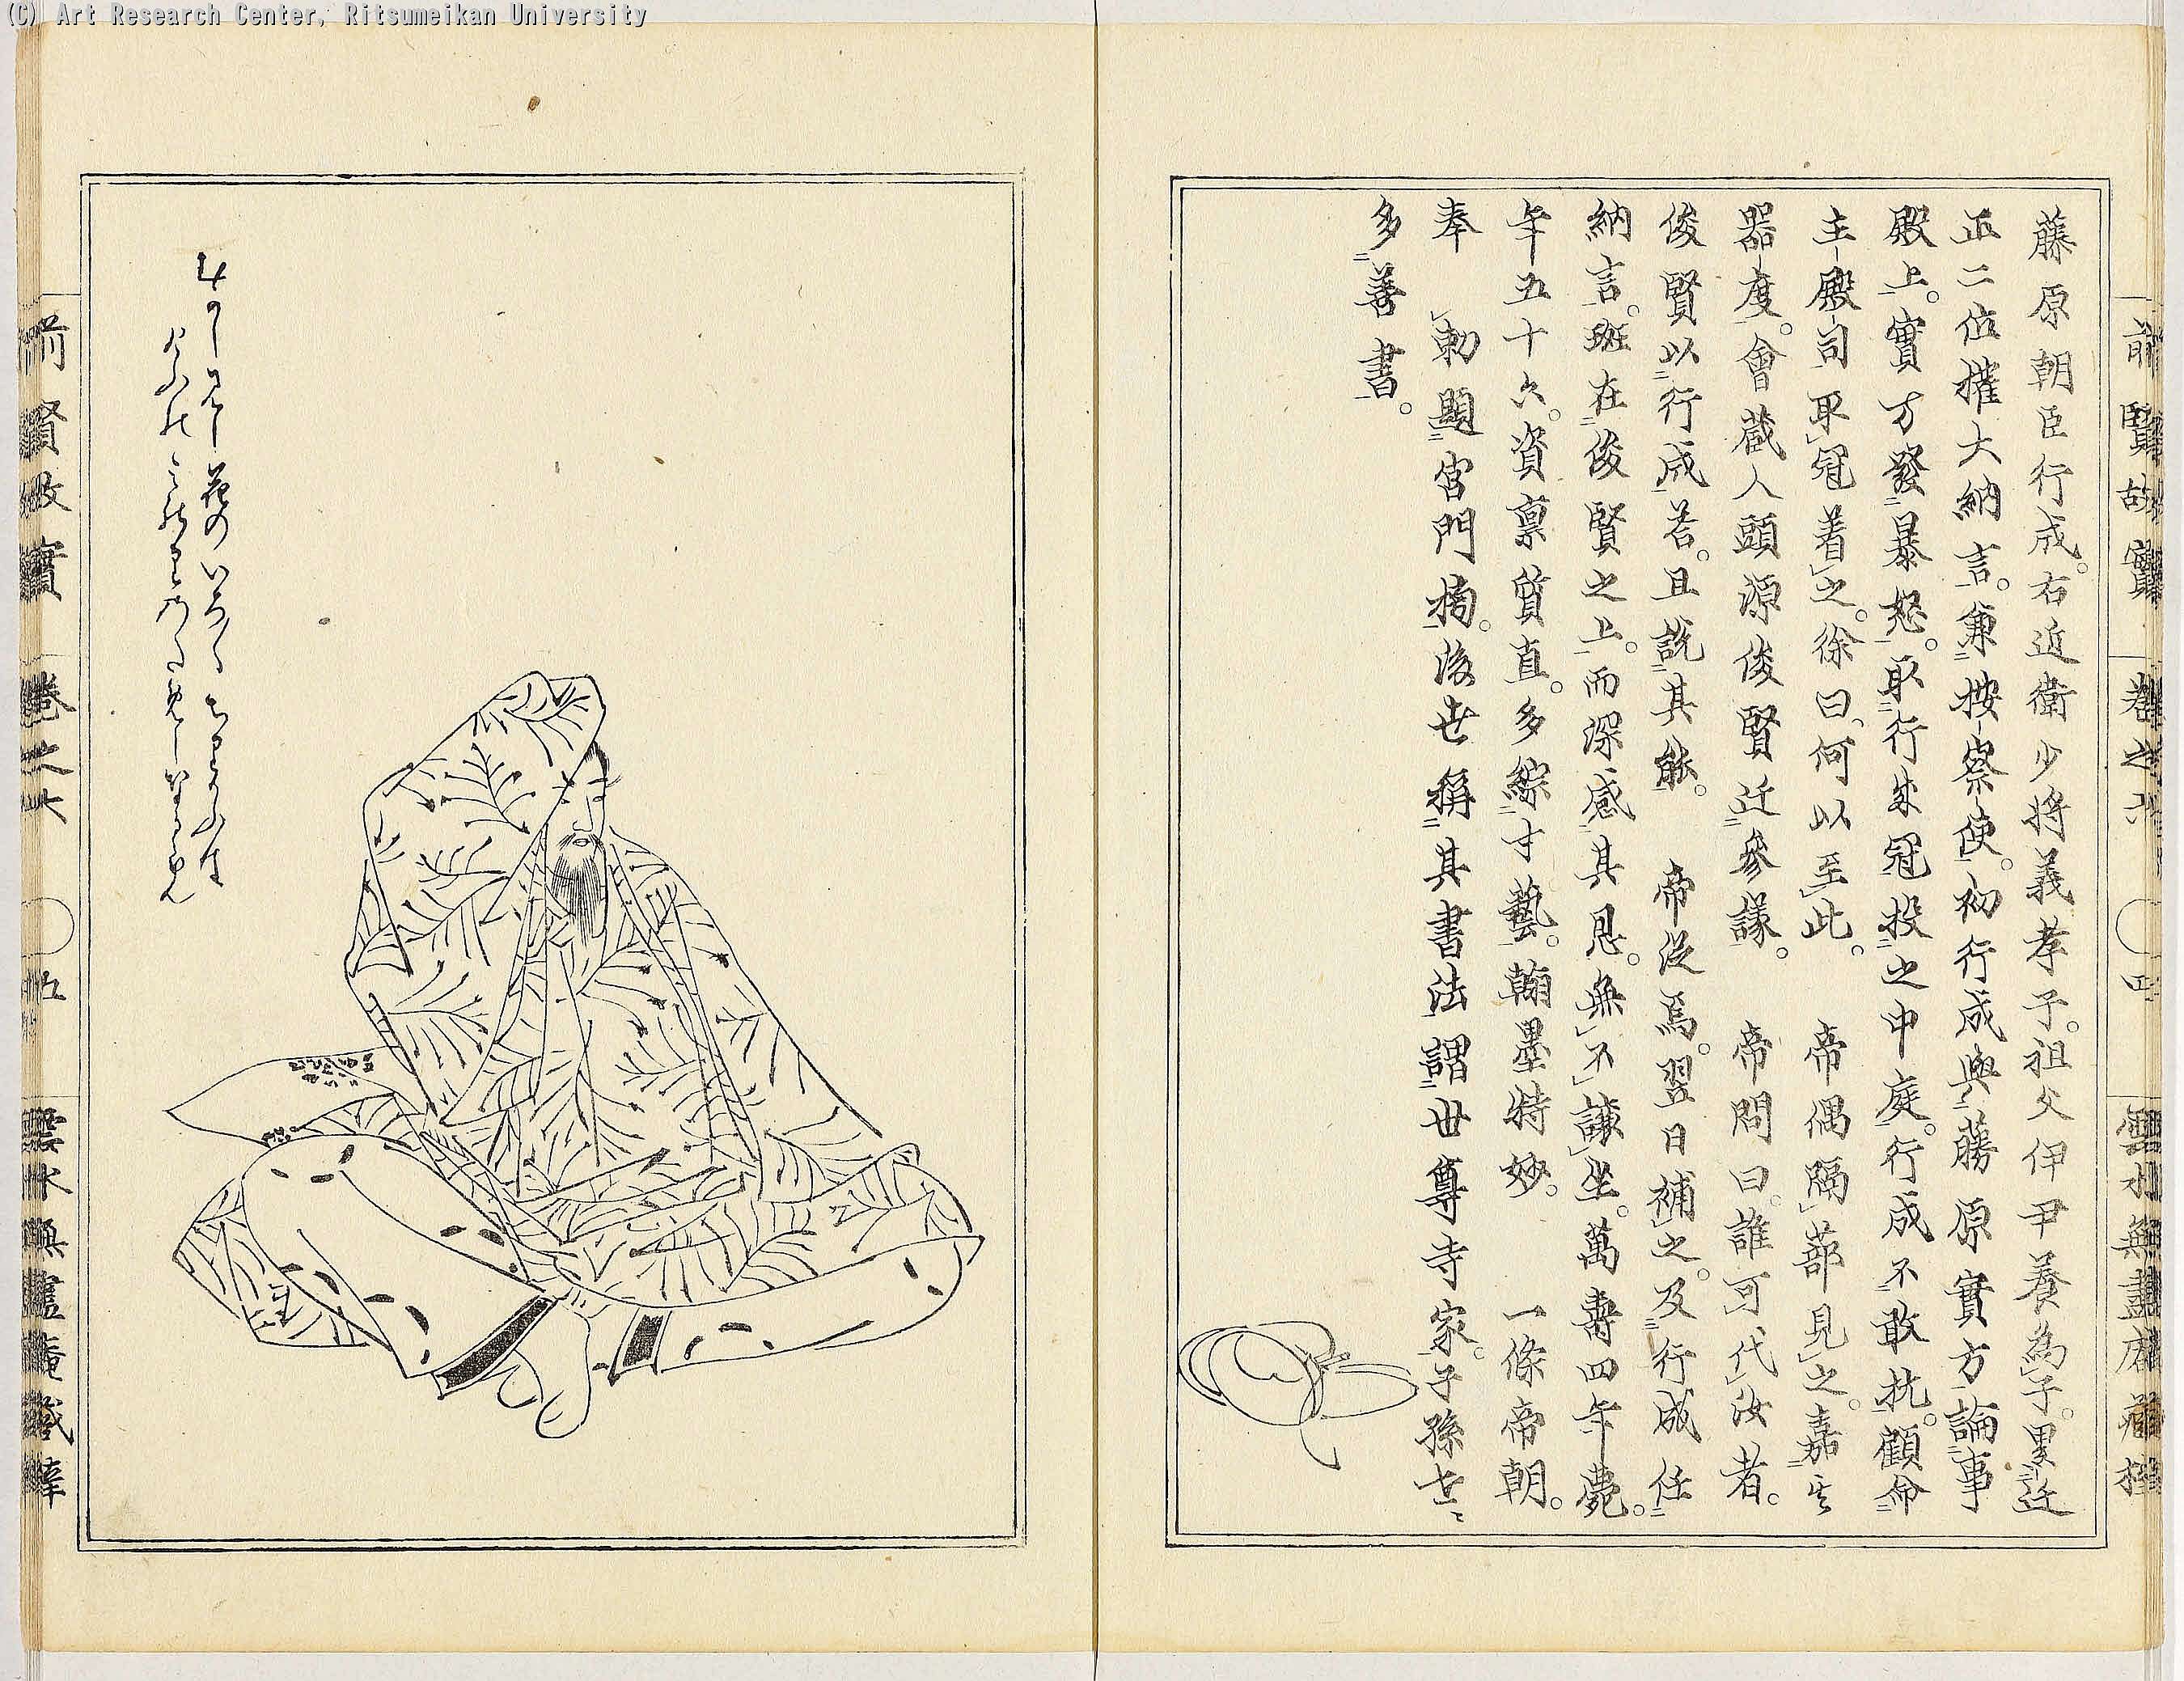 前賢故實 卷之六 〇四 雲水無盡庵藏梓
藤原朝臣行成。右近衛少將義孝子。祖父伊尹養為子。累迁
正二位權大納言。兼按察使。初行成與藤原實方論事
殿上。實方發暴怒。取行成冠投之中庭。行成不敢抗。顧命
主殿司取冠着之。徐曰、何以至此。 帝偶隔蔀見之。嘉其
器度。會蔵人頭源俊賢迁參議。 帝問曰。誰可代汝者。
俊賢以行成荅。且說其能。 帝從焉。翌日補之。及行成任
納言。班在俊賢之上。而深感其恩。無不謙坐。萬壽四年薨。
年五十六。資稟質直。多綜才藝。翰墨特妙。 一條帝朝。
奉 勅題宮門㮄。後世稱其書法謂世尊寺家。子孫世〻
多善書。
前賢故實 卷之六 〇五 雲水無盡庵藏梓
(C) Art Research Center, Ritsumeikan University